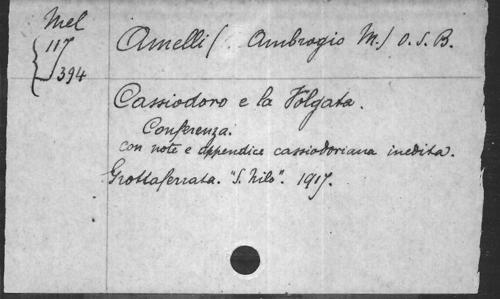 Mel
117
394
Amelli (. Ambrogio M.) O.S.B.
Cassiodoro e la Volgata.
Conferenza.
con note e appendice cassiodoriana inedita.
Grottaferrata. "S. Nilo". 1917.